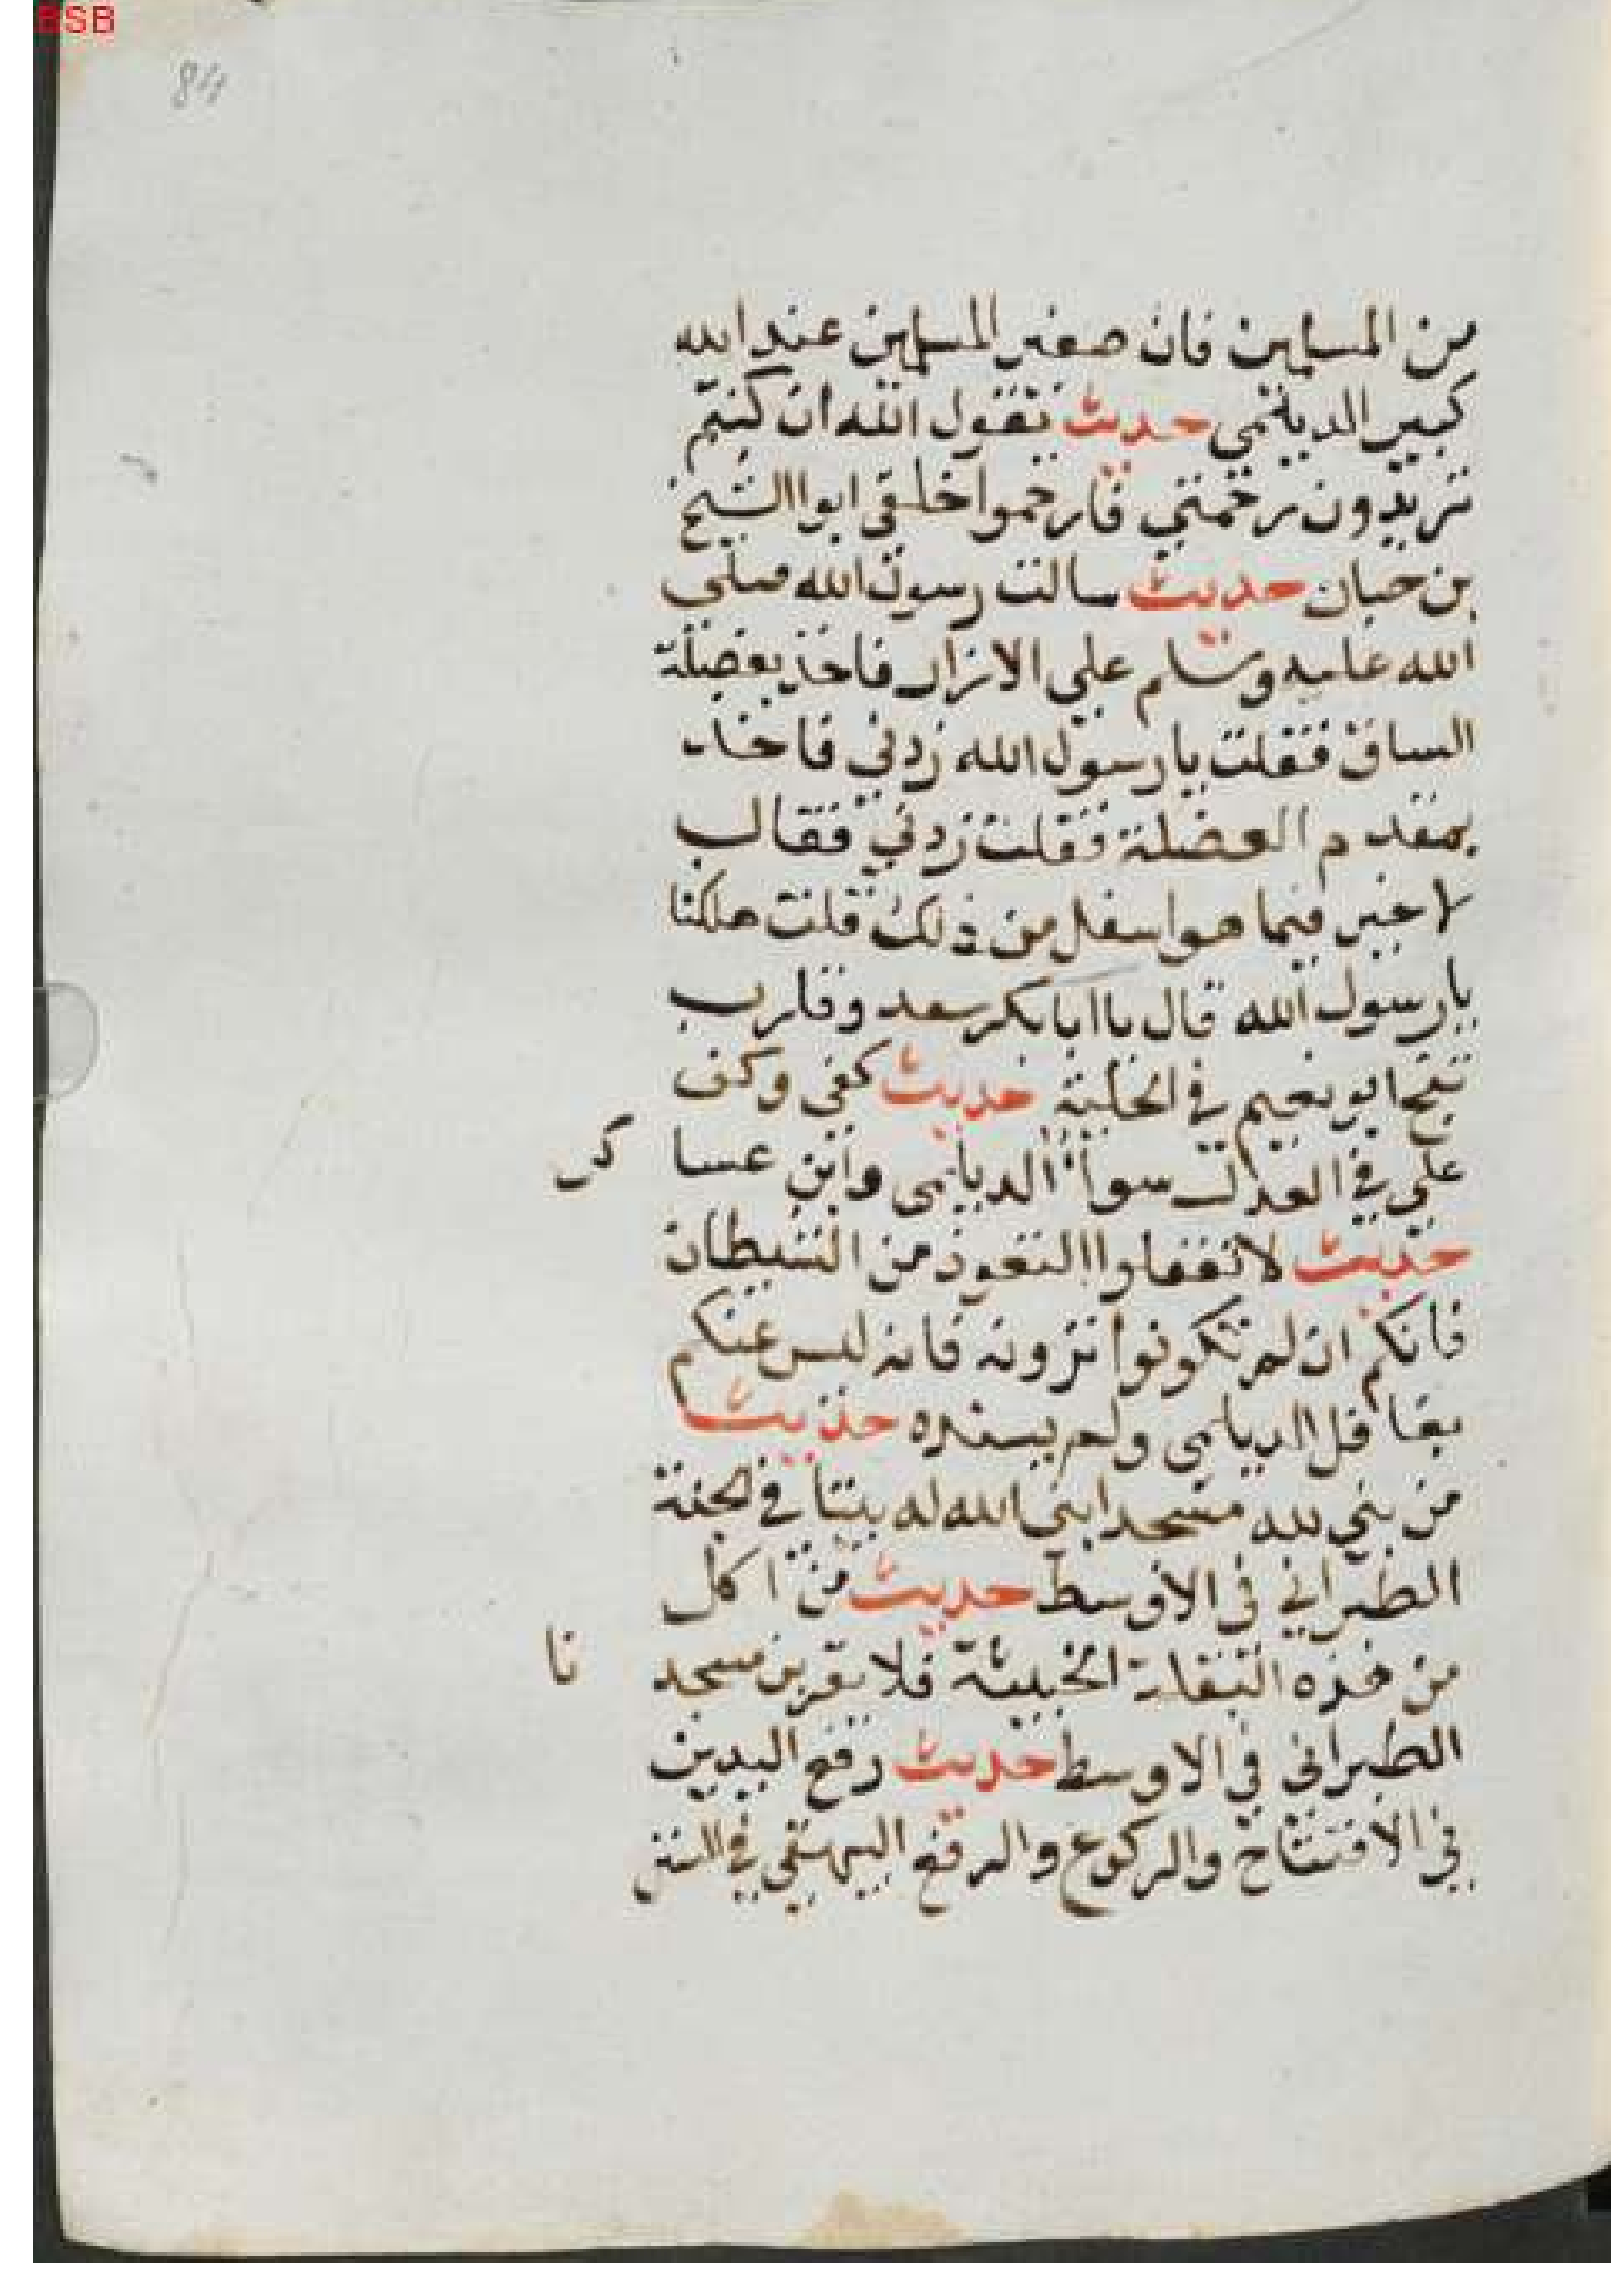 BSB
84
من المسلمين فان صغير المسلمين عند الله
كبير الديلمي حديث يقول الله ان كنتم
تريدون رحمتي فارحموا خلقي ابوا الشيخ
بن حبان حديث سالت رسول الله صلي
الله عليه وسلم علي الازار فاخذ بعضلة
الساق فقلت يا رسول الله زدني فاخذ
بمقدم العضلة فقلت زدني فقال
لا خير فيما هو اسفل من ذلك قلت هلكنا
يا رسول الله قال يا ابا بكر سدد وقارب
تنج ابو نعيم في الحلية حديث كفي وكف
علي في العدل سوآ الديلمي وابن عساكر
حديث لا تغفلوا التعوذ من الشيطان
فانكم ان لم تكونوا ترونه فانه ليس عنكم
بغافل الديلمي ولم يسنده حديث
من بني لله مسجدا بني الله له بيتا في الجنة
الطبراني في الاوسط حديث من اكل
من هذه البقلة الخبيثة فلا يقربن مسجدنا
الطبراني في الاوسط حديث رفع اليدين
في الافتتاح والركوع والرفع البيهقي في السنن